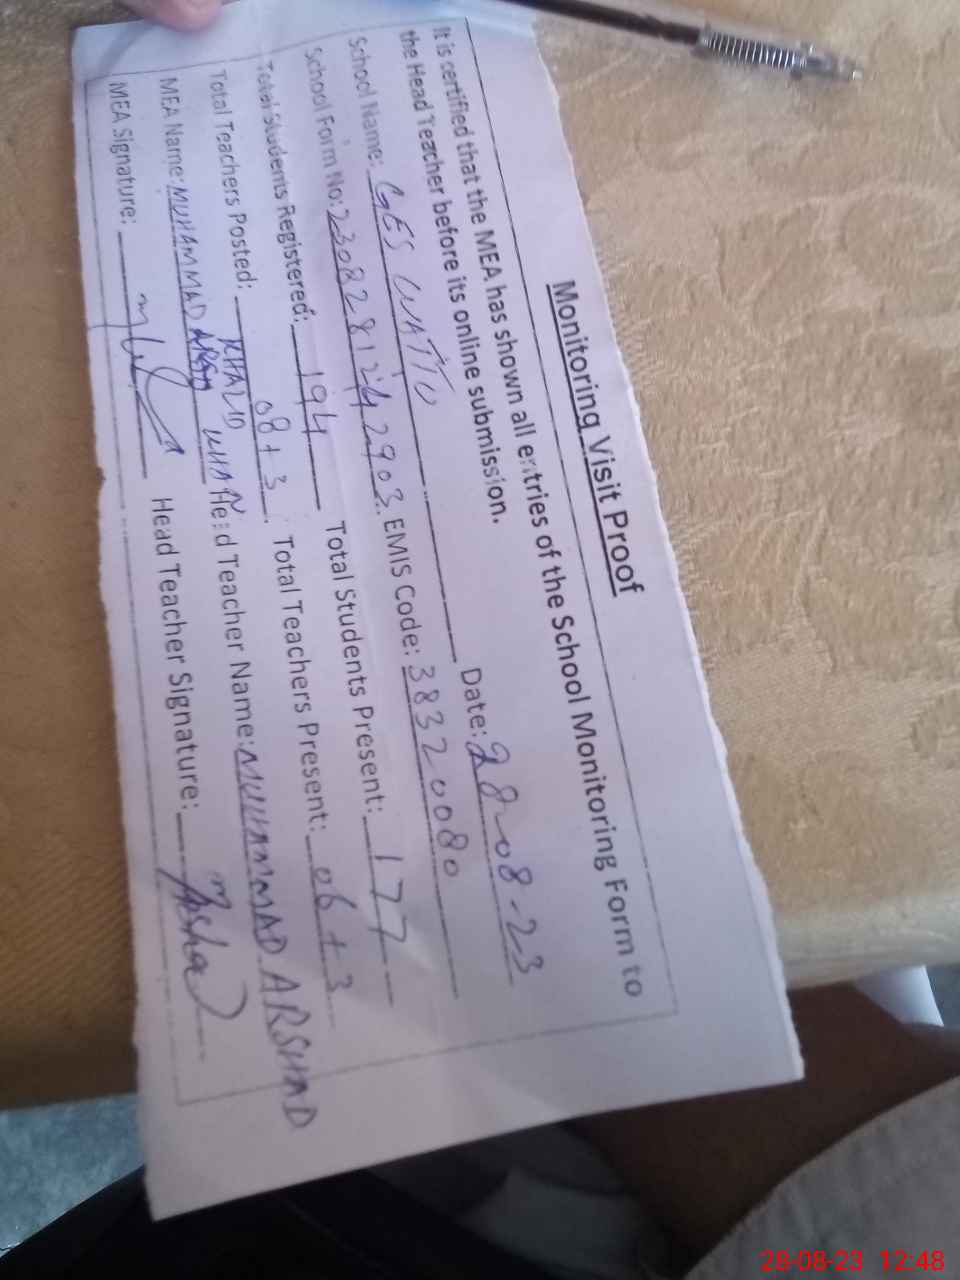 Monitoring Visit Proof
It is certified that the MEA has shown all entries of the School Monitoring Form to
the Head Teacher before its online submission.
School Name: GES WATTU Date: 28-08-23
School Form No: 2308281242903. EMIS Code: 38320080
Total Students Registered: 194 Total Students Present: 177
Total Teachers Posted: 08+3. Total Teachers Present: 06+3
MEA Name: MUHAMMAD KHALID Head Teacher Name: MUHAMMAD ARSHAD
MEA Signature: Head Teacher Signature:
28-08-23 12:48